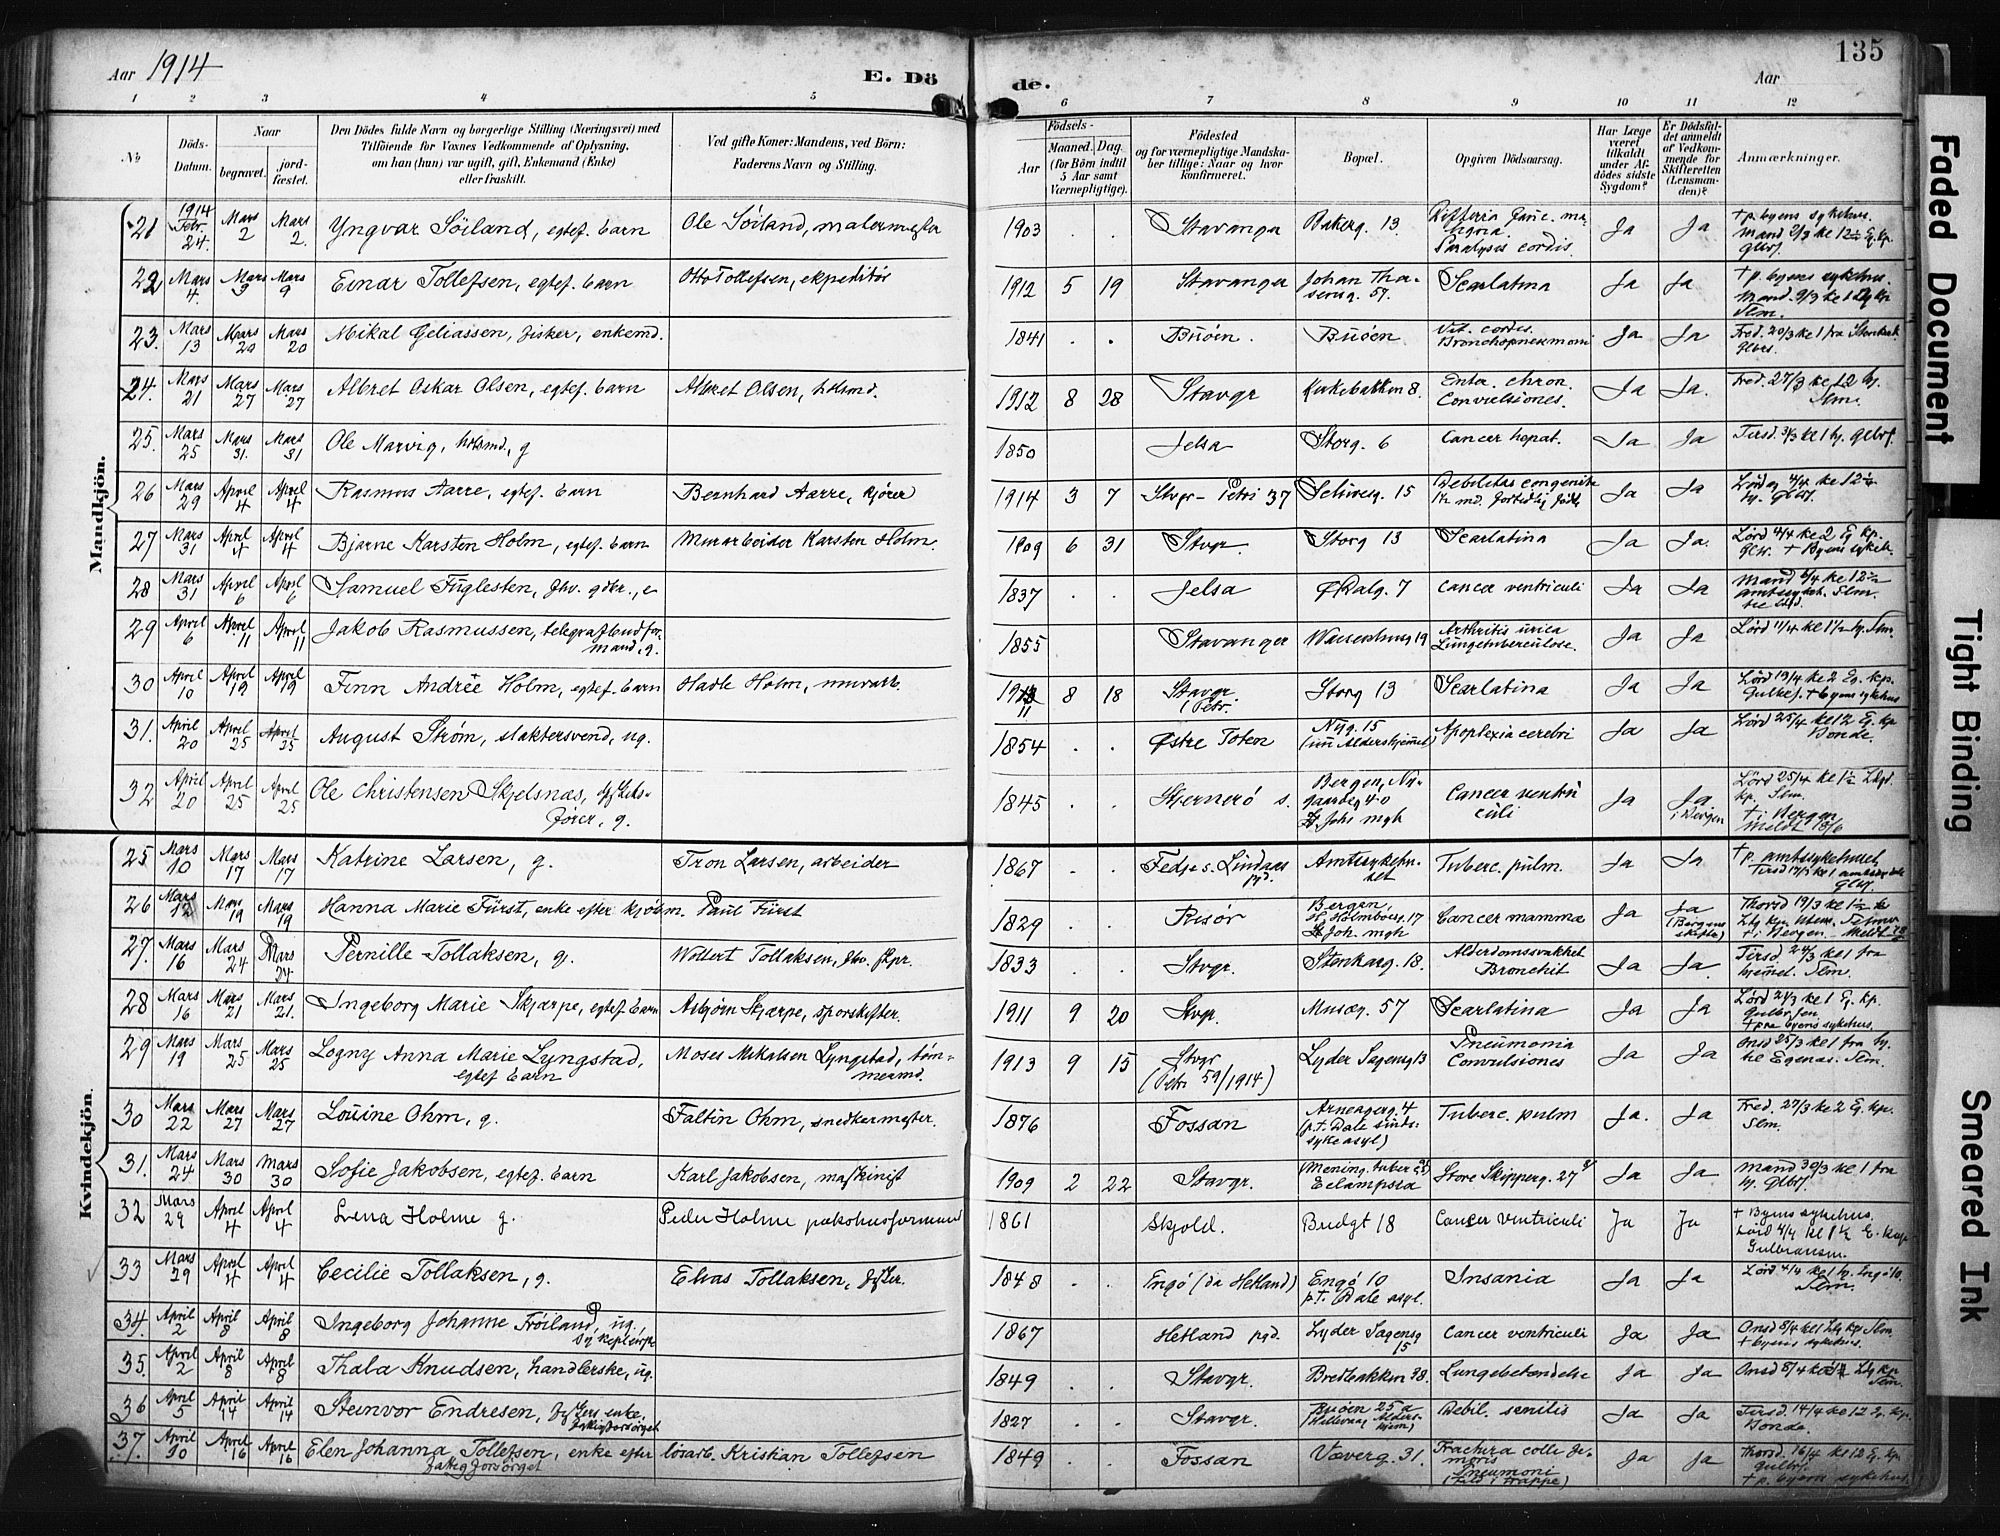 Aar 1914
E. Dö
de.
Aar
135
1 2 3 4 5 6 7 8 9 10 11 12
No
Döds-Datum.
Naar
begravet. jordfæstet.
Den Dödes fulde Navn og borgerlige Stilling (Næringsvei) med
Tilföiende for Voxnes Vedkommende af Oplysning,
om han (hun) var ugift, gift, Enkemand (Enke)
eller fraskilt.
Ved gifte Koner: Mandens, ved Börn:
Faderens Navn og Stilling.
Födsels-
Aar
Maaned. Dag.
(for Börn indtil
5 Aar samt
Værnepligtige).
Födested
og for værnepligtige Mandskaber tillige: Naar og hvor
konfirmeret.
Bopæl.
Opgiven Dödsaarsag.
Har Læge
været
tilkaldt
under Afdödes sidste
Sygdom?
Er Dödsfaldet anmeldt
af Vedkommende for
Skifteretten
(Lensmanden)?
Anmærkninger.
Mandkjön.
21 1914 Febr. 24. Mars 2 Mars 2. Yngvar Söiland, egtef. barn Ole Söiland, malermester 1903 . . Stavanger Bakerg. 13 Paralysis cordis. Ja Ja + p. byens sykehus. Mand 2/3
22 Mars 4 Mars 9 Mars 9 Einar Tollefsen, egtef. barn Otto Tollefsen, ekspeditör 1912 5 19 Stavanger Johan Thasensg. 59. Scarlatina Ja Ja + p. byens sykehus. Mand. 9/3
23. Mars 13 Mars 20 Mars 20 Mikal Geliassen, fisker, enkemd. 1841 . . Buöen. Buöen Vit. cordis. Bronchopneumoni Ja Ja Fred. 20/3 ke 1 fra
24. Mars 21 Mars 27 Mars 27 Albret Oskar Olsen, egtef. barn Albret Olsen, 1912 8 28 Stavgr Kirkebakken 8. Enter. chron. Convulsiones. Ja Ja. Fred. 27/3 ke 12 hj. Slm.
25. Mars 25 Mars 31. Mars 31 Ole Marvig, g 1850 Jelsa Storg. 6 Cancer hepat. Ja Ja Tirsd. 31/3 ke 1 hj.
26 Mars 29 April 4 April 4 Rasmus Aarre, egtef. barn Bernhard Aarre, kjörer 1914 3 7 Stvgr - Petri 37 15 Debilitas congenita Ja Ja Lördag 4/4
27 Mars 31 April 4 April 4 Bjarne Karsten Holm, egtef. barn Murarbeider Karsten Holm. 1909 6 31 Stvgr. Storg 13 Scarlatina Ja Ja. Lörd 4/4 ke 2 Eg. kp. + Byens sykeh.
28 Mars 31 April 6 April 6 Samuel Fuglesten, e 1837 . . Jelsa Ø Dalg. 7 Cancer ventriculi Ja Ja Mand 6/4 amtssykeh. Slm.
29 April 6 April 11 April 11 Jakob Rasmussen, telegrafbudformand, g. 1855 Stavanger 19 Arthritis urica Lungetuberculose. Ja Ja Lörd 11/4 hj. Slm.
30 April 10 April 19 April 19 Finn Andrée Holm, egtef. barn Holm, murarb. 8 18 Stavgr Petr. Storg 13 Scarlatina Ja Ja Lörd 19/4 ke 2 Eg. kp. + byens sykehus
31. April 20 April 25 April 25 August Ström, slaktersvend, ug. 1854 . . Østre Toten Nyg. 15 (Aldershjemmet) Apoplexia cerebri Ja Ja Lörd 25/4 ke 12 Eg. kp Bonde.
32 April 20 April 25 April 25 Ole Christensen Skjelsnæs, g. 1845 . . Stjernerö s. Bergen, Nygaardsg 40 Cancer ventriculi Ja Ja i Bergen Lörd 25/4 kp. Slm. + i Bergen Meldt 18/6
Kvindekjön.
25 Mars 10 Mars 17 Mars 17 Katrine Larsen, g. Tron Larsen, arbeider 1867 . . Fedje s. Lindaas pgd. Amtssykehuset Tuberc. pulm. Ja Ja + p. amtssykehuset, Tirsd 17/3 ke 1
26 Mars 12 Mars 19 Mars 19 Hanna Marie Fürst, enke efter kjöbm. Paul Fürst 1829 . . Risör Bergen, Holmboesg. 17 Cancer mamma Ja Ja (Bergens skifter) Thorsd 19/3 + i Bergen. Meldt
27. Mars 16 Mars 24 Mars 24 Pernille Tollaksen, g. Wollert Tollaksen, 1833 . . Stvgr. Stenkarg. 18. Alderdomssvakhet Bronchit Ja Ja Tirsd. 24/3 ke 1 fra hjemmet. Slm.
28 Mars 16 Mars 21 Mars 21. Ingeborg Marie Skjærpe, egtef. barn Asbjörn Skjærpe, sporskifter. 1911 9 20 Stvgr. Musæg. 57 Scarlatina Ja Ja Lörd 21/3 ke 1 Eg. kp. + paa byens sykehus.
29 Mars 19 Mars 25 Mars 25 Logny Anna Marie Lyngstad, egtef barn Moses Mikalsen Lyngstad, tömmermd. 1913 9 15 Stvgr (Petri 59/1914) Lyder Sagensg 13 Pneumonia Convulsiones Ja Ja Onsd 25/3 ke 1 fra hj. Slm.
30 Mars 22 Mars 27 Mars 27 Louine Ohm, g. Faltin Ohm, snedkermester. 1876 . . Fossan Arneagerg. 4 (p.t. Dale sindssykeasyl) Tuberc. pulm Ja. Ja Fred. 27/3 ke 2 Eg. kp. Slm.
31. Mars 24 Mars 30 Mars 30 Sofie Jakobsen, egtef. barn Karl Jakobsen, maskinist 1909 2 22 Stavgr. (Mening. tuber) Eclampsia Store Skipperg. 27 Ja Ja Mand 30/3 ke 1 fra hj.
32 Mars 29 April 4 April 4 Lena Holme g. Peder Holme pakhusformand 1861 Skjold. Bredgt 18 Cancer ventriculi Ja Ja + Byens sykehus. Lörd 4/4 Gulbransen.
33 Mars 29 April 4 April 4 Cecilie Tollaksen, g. Elias Tollaksen, 1848 . . Engö (da Hetland) Engö 10 p.t. Dale asyl. Insania Ja Ja Lörd 4/4 ke 1 hj. Engö 10. Slm.
34. April 2 April 8 April 8 Ingeborg Johanne Fröiland, ug., 1867 . . Hetland pgd. Lyder Sagensg 15 Cancer ventriculi Ja Ja Onsd 8/4 ke 1 Slm + byens sykehus.
35. April 2 April 8 April 8 Thala Knudsen, handlerske, ug. 1849 . . Stavgr. Bredbakken Lungebetændelse Ja Ja Onsd 8/4 Slm.
36 April 5 April 14 April 14 Steinvor Endresen, enke, fattigforsörget 1827 . . Stavgr. Buöen 25 a Debil. senilis Ja Ja Tirsd. 14/4 ke 12 Eg. kp. Bonde.
37. April 10 April 16 April 16 Elen Johanna Tollefsen, enke efter lösarb. Kristian Tollefsen fattigforsörget 1849 . . Fossan Væverg. 31. Fractura colli femoris Pneumoni (fald i trappe) Ja Ja Thorsd. 16/4 ke 12 Eg. kp + p. byens sykehus
Faded Document
Tight Binding
Smeared Ink